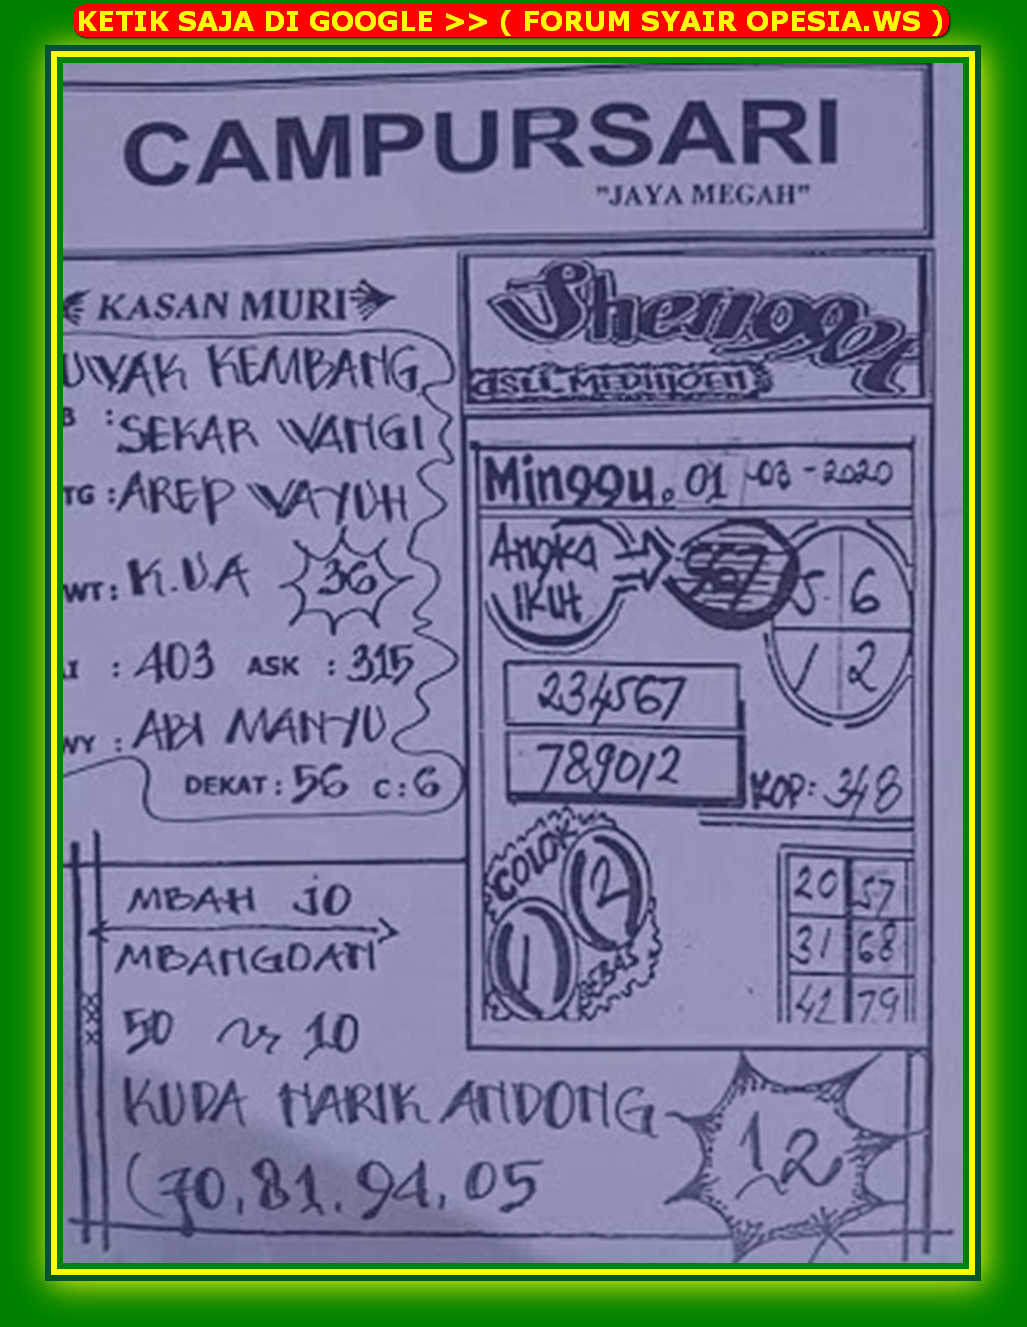 KETIK SAJA DI GOOGLE >> ( FORUM SYAIR OPESIA.WS )
CAMPURSARI
"JAYA MEGAH"
KASAN MURI
UWAK KEMBANG
B : SEKAR WANGI
TG : AREP WAYUH
WT : K.UA 36
: 403 ASK : 315
WY : ABI MANYU
DEKAT : 56 C : 6
Shenggot
ASLI MEDIIOEN
Minggu. 01 -03 -2020
Angka IKUT 567
5 6
1 2
234567
789012
KOP: 348
COLOK
1 2
BEBAS
20 57
31 68
42 79
MBAH JO
MBANGDAN
50 10
KUDA NARIK ANDONG
(70, 81, 94, 05
12